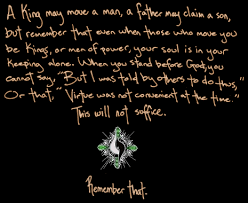 A King may move a man, a father may claim a son,
but remember that even when those who move you
be Kings, or men of power, your soul is in your
keeping alone. When you stand before God, you
cannot say, "But I was told by others to do thus,"
Or that, "Virtue was not convenient at the time."
This will not suffice.
Remember that.